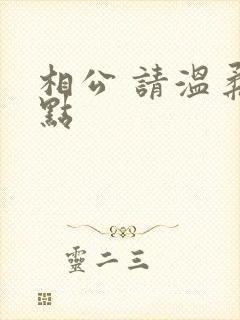 相公 請溫柔
點
靈二三